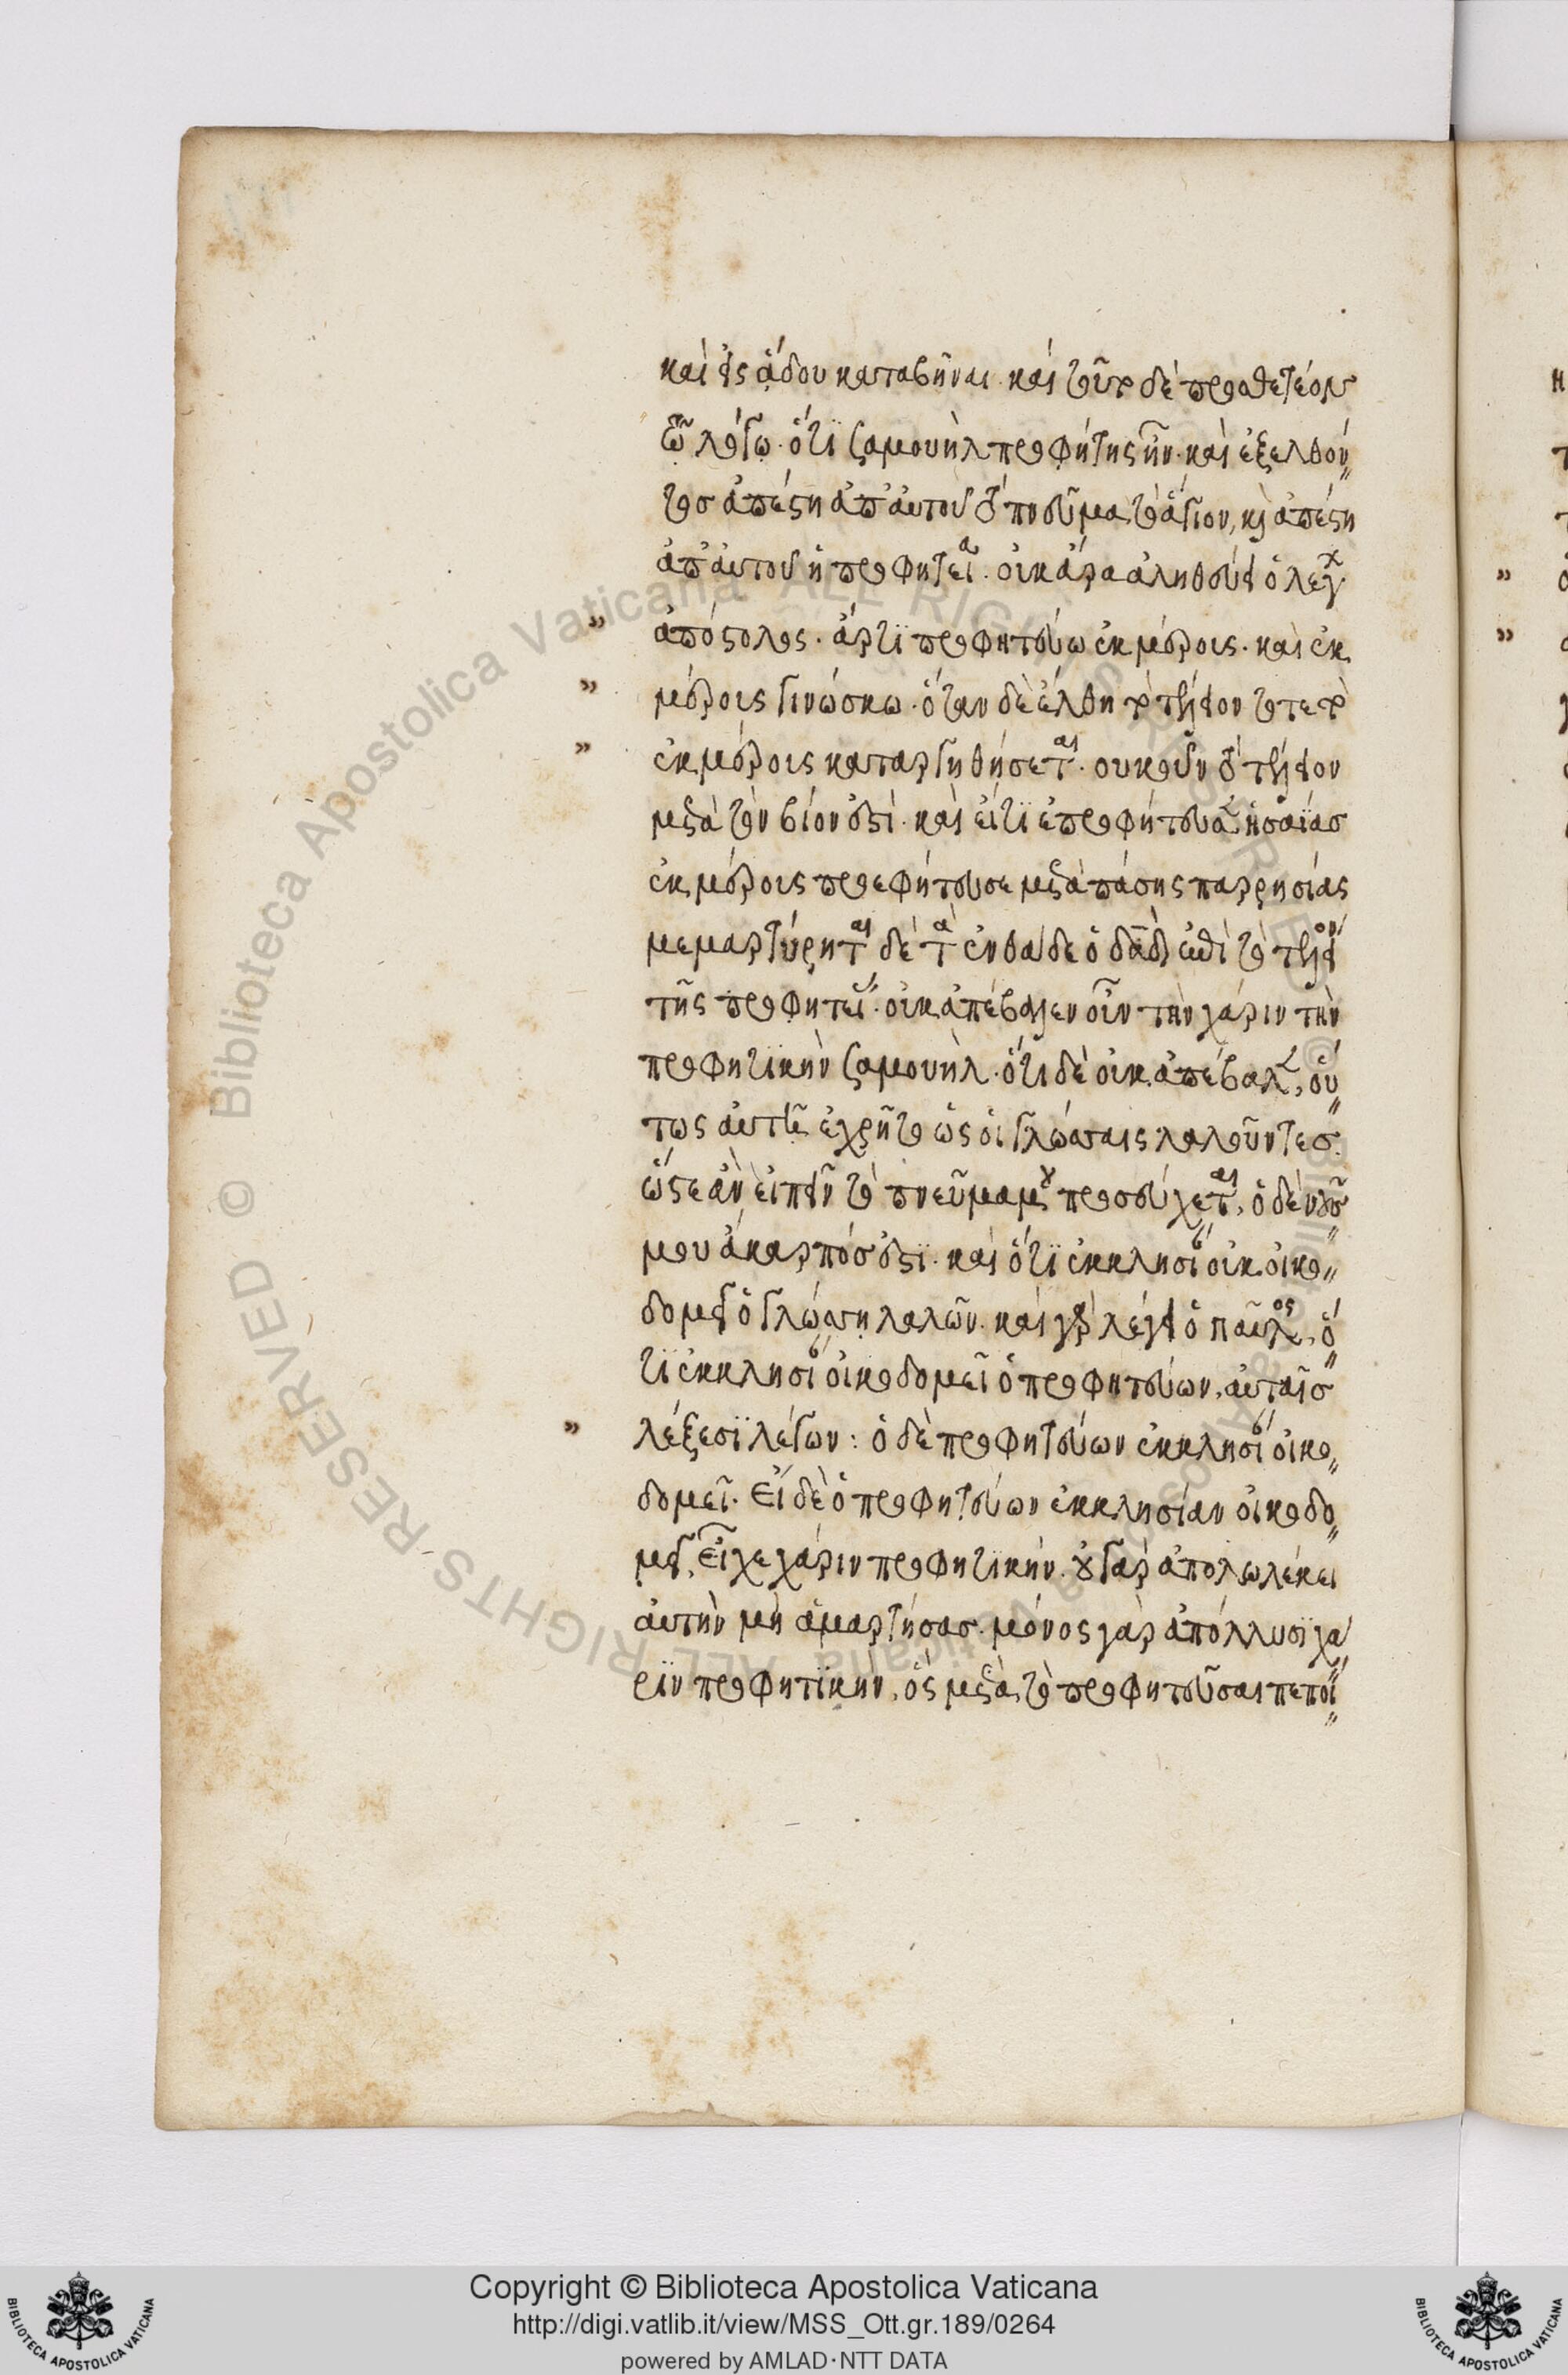 καὶ εἰς ᾅδου καταβῆναι. καὶ τοῦτο δὲ προσθετέον
τῷ λόγῳ. ὅτι Σαμουὴλ προφήτης ἦν. καὶ ἐξελθόν
τος ἀπέστη ἀπ' αὐτοῦ τὸ πνεῦμα τὸ ἅγιον, καὶ ἀπέστη
ἀπ' αὐτοῦ ἡ προφητεία. οὐκ ἄρα ἀληθεύει ὁ λέγων
ἀπόστολος. ἄρτι προφητεύω ἐκ μέρους. καὶ ἐκ
μέρους γινώσκω. ὅταν δὲ ἔλθη τὸ τέλειον τότε τὸ
ἐκ μέρους καταργηθήσεται. οὐκοῦν τὸ τέλειον
μετὰ τὸν βίον ἐστί. καὶ εἴ τι ἐπροφήτευσεν ἡσαΐας
ἐκ μέρους προεφήτευσε μετὰ πάσης παρρησίας
μεμαρτύρηται δὲ τὰ ἐνθάδε ὁ δαδ ἐπὶ τὸ τέλειον
τῆς προφητείας. οὐκ ἀπέβαλεν οὖν τὴν χάριν τὴν
προφητικὴν Σαμουήλ. ὅτι δὲ οὐκ ἀπέβαλεν, οὕ
τως αὐτῇ ἐχρῆτο ὡς οἱ γλώσσαις λαλοῦντες.
ὥστε ἂν εἰπεῖν τὸ πνεῦμα μου προσεύχεται, ὁ δὲ νοῦς
μου ἄκαρπός ἐστι. καὶ ὅτι ἐκκλησίαν οὐκ οἰκο
δομεῖ ὁ γλώσση λαλῶν. καὶ γὰρ λέγει ὁ παῦλος, ὅ
τι ἐκκλησίαν οἰκοδομεῖ ὁ προφητεύων, αὐταῖς
λέξεσι λέγων: ὁ δὲ προφητεύων ἐκκλησίαν οἰκο
δομεῖ. Εἰ δὲ ὁ προφητεύων ἐκκλησίαν οἰκοδο
μεῖ, εἶχε χάριν προφητικήν. οὐ γὰρ ἀπολωλέκει
αὐτὴν μὴ ἁμαρτήσας. μόνος γὰρ ἀπόλλυσι χά
ριν προφητικήν, ὃς μετὰ τὸ προφητεῦσαι πεποί
Copyright © Biblioteca Apostolica Vaticana
http://digi.vatlib.it/view/MSS_Ott.gr.189/0264
powered by AMLAD·NTT DATA